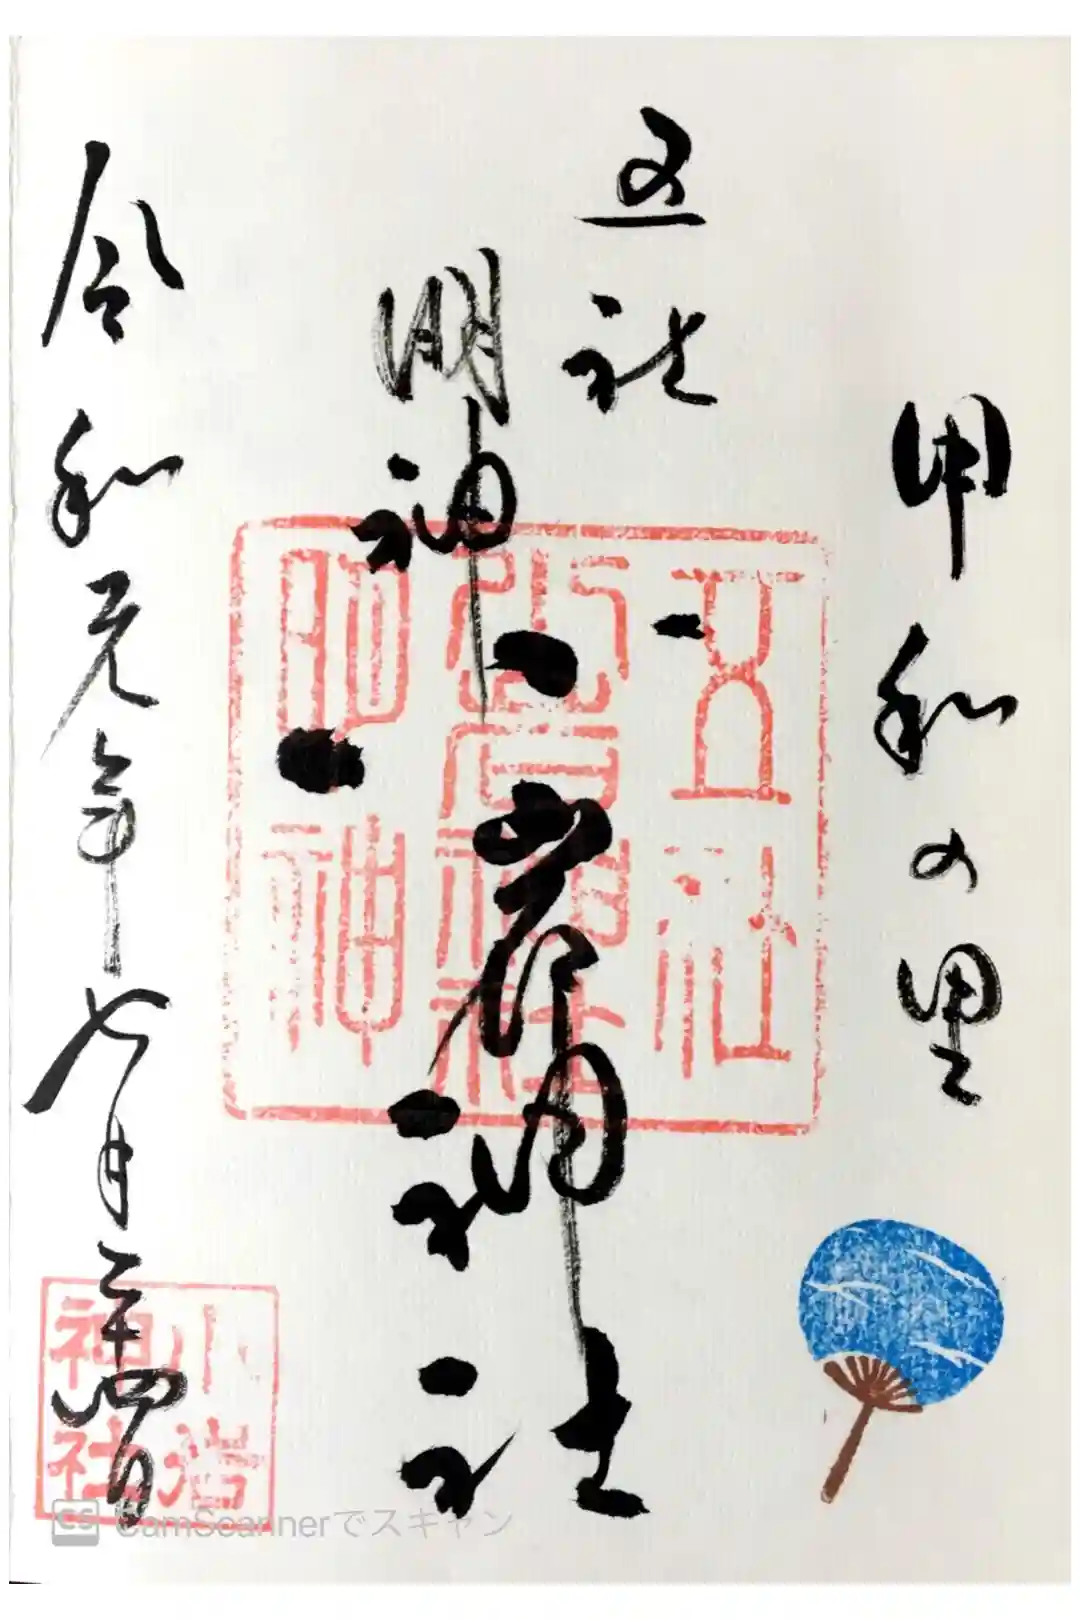 甲和の里
五社
明神
小岩神社
令和元年七月二十四日
五社
小岩神社
明神
小岩神社
CS CamScannerでスキャン